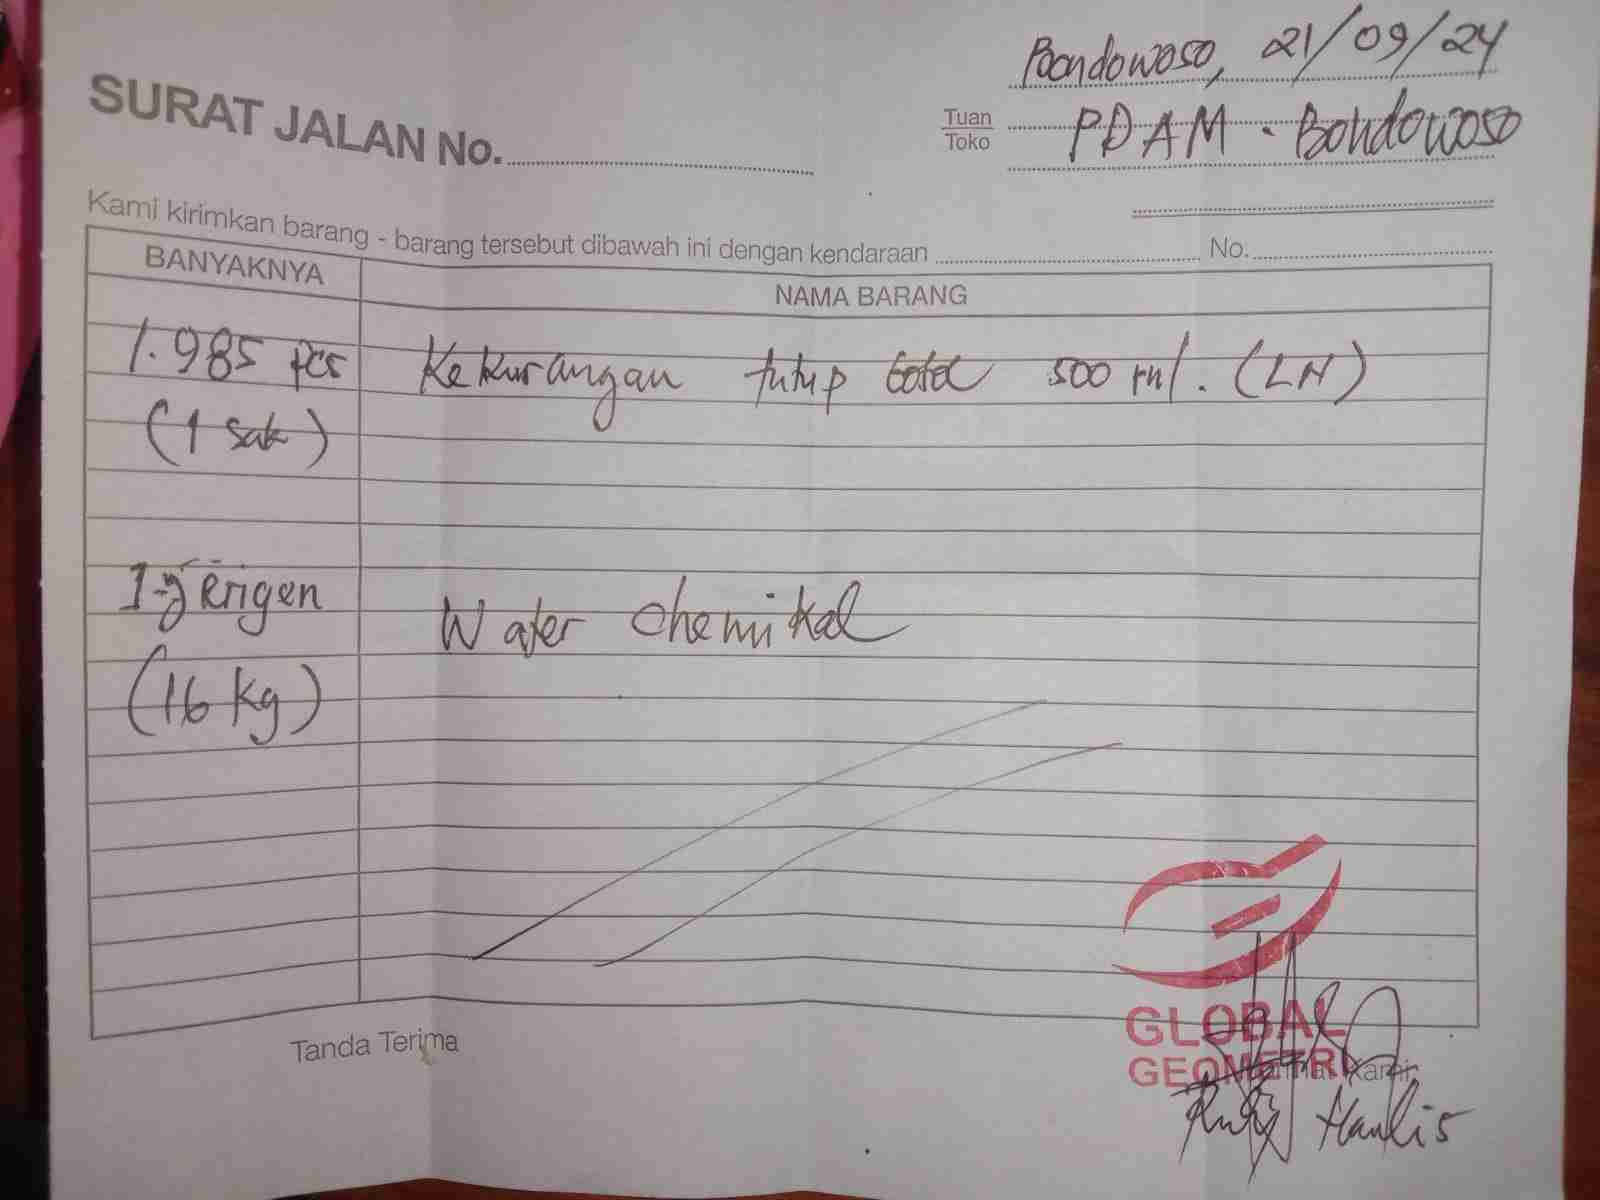 Bondowoso, 21/09/24
SURAT JALAN No.
Tuan
Toko
PDAM - Bondowoso
Kami kirimkan barang - barang tersebut dibawah ini dengan kendaraan No.
BANYAKNYA NAMA BARANG
1.985 pcs Kekurangan tutup botol 500 ml. (LN)
(1 sak)
1 jerigen Water chemikal
(16 kg)
GLOBAL
GEOMETRI
Tanda Terima Hormat Kami